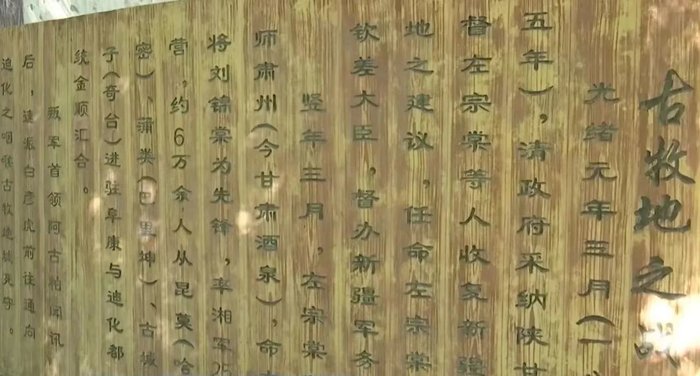 古牧地之战
光绪元年三月(一八
五年),清政府采纳陕甘
督左宗棠等人收复新疆
地之建议,任命左宗棠
钦差大臣,督办新疆军务
翌年三月,左宗棠
师肃州(今甘肃酒泉),命
将刘锦棠为先锋,率湘军25
营,约6万余人从昆莫(哈
密)、蒲类(巴里坤)、古城
子(奇台)进驻阜康与迪化都
统金顺汇合。
叛军首领阿古柏闻讯
后,速派白彦虎前往通向
迪化之咽喉古牧地城死守。